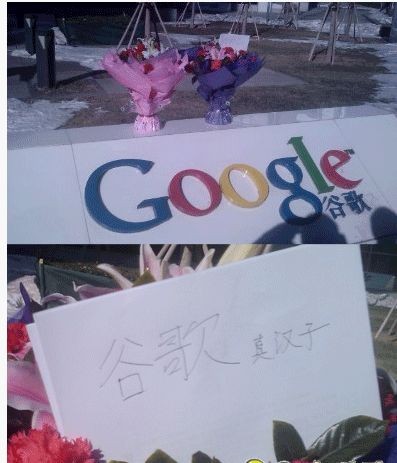 Google™
谷歌
谷歌 真汉子